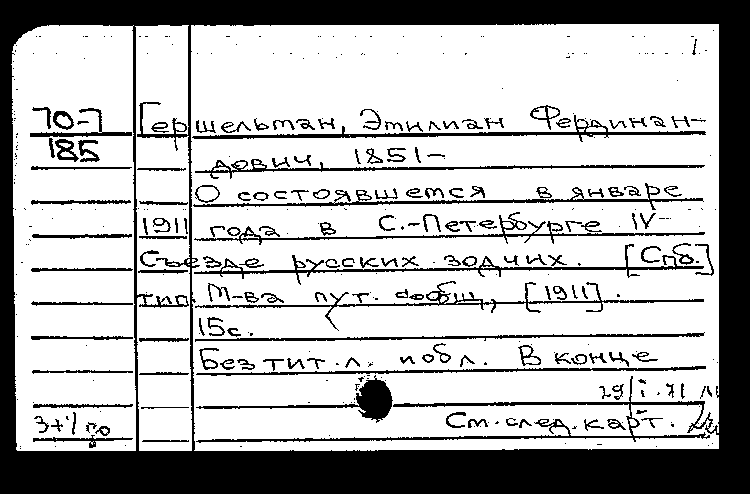 1
70-7
185
Гершельман, Этилиан Фердинан-
дович, 1851-
О состоявшемся в январе
1911 года в С.-Петербурге IV-
Съезде русских зодчих. [Спб.]
тип. М-ва пут. сообщ., [1911].
15с.
Без тит. л. и обл. В конце
29/I.71
См. след. карт.